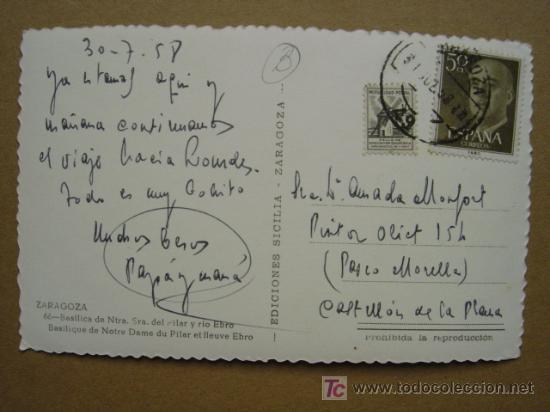 30-7-58
ya estamos aqui y
mañana continuamos
el viaje hacia Lourdes.
Todo es muy bonito
Muchos besos
Papá y mamá
ZARAGOZA
66—Basílica de Ntra. Sra. del Pilar y río Ebro
Basilique de Notre Dame du Pilar et fleuve Ebro
— EDICIONES SICILIA - ZARAGOZA ...
B
50
ESPAÑA
CORREOS
Sra. Dª Amada Monfort
Pintor Oliet 15
(Paseo Morella)
Castellón de la Plana
Prohibida la reproducción
TC www.todocoleccion.net